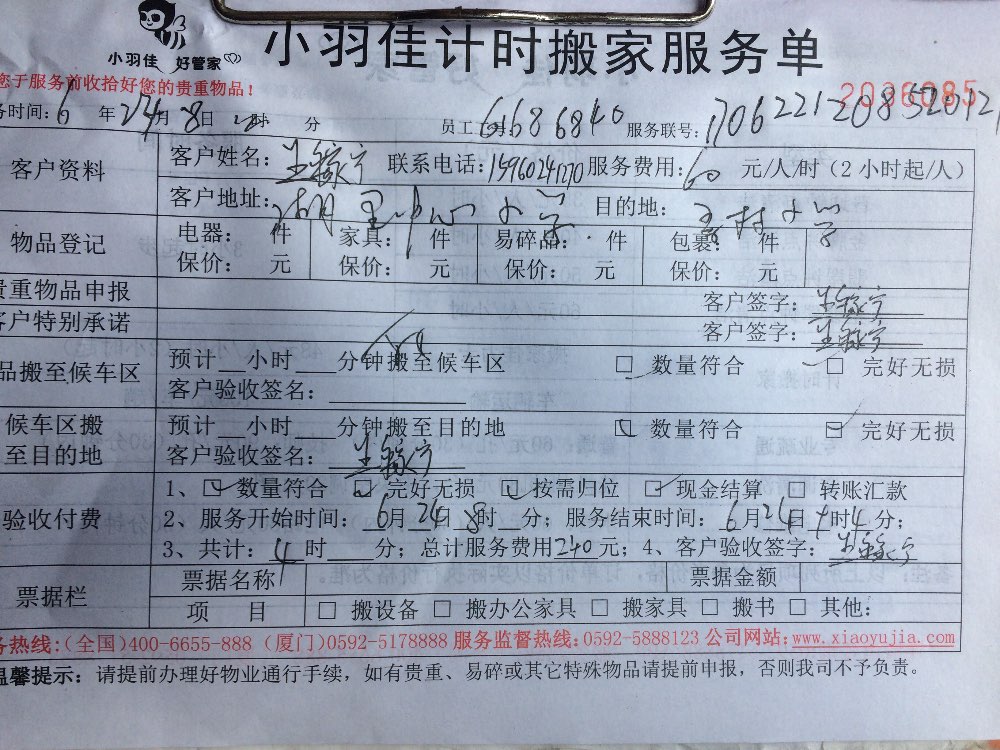 小羽佳 好管家
小羽佳计时搬家服务单
您于服务前收拾好您的贵重物品！
2096085
务时间：6 年 24 月 8 日 时 分 员工 6686840 服务联号：
客户资料 客户姓名： 联系电话：15960241270 服务费用：60 元/人/时（2小时起/人）
客户地址：湖里中心小学 目的地：
物品登记 电器： 件 家具： 件 易碎品： 件 包裹： 件
保价： 元 保价： 元 保价： 元 保价： 元
贵重物品申报 客户签字：
客户特别承诺 客户签字：
品搬至候车区 预计__小时___分钟搬至候车区 □ 数量符合 □ 完好无损
客户验收签名：
候车区搬至目的地 预计__小时___分钟搬至目的地 □ 数量符合 □ 完好无损
客户验收签名：
验收付费 1、☑数量符合 ☑完好无损 ☑按需归位 ☑现金结算 □ 转账汇款
2、服务开始时间：6月24日8时__分；服务结束时间：6月24日 时4分；
3、共计：4时___分；总计服务费用240元；4、客户验收签字：
票据栏 票据名称 票据金额
项 目 □ 搬设备 □ 搬办公家具 □ 搬家具 □ 搬书 □ 其他：
务热线：（全国）400-6655-888（厦门）0592-5178888 服务监督热线：0592-5888123 公司网站：www.xiaoyujia.com
温馨提示：请提前办理好物业通行手续，如有贵重、易碎或其它特殊物品请提前申报，否则我司不予负责。